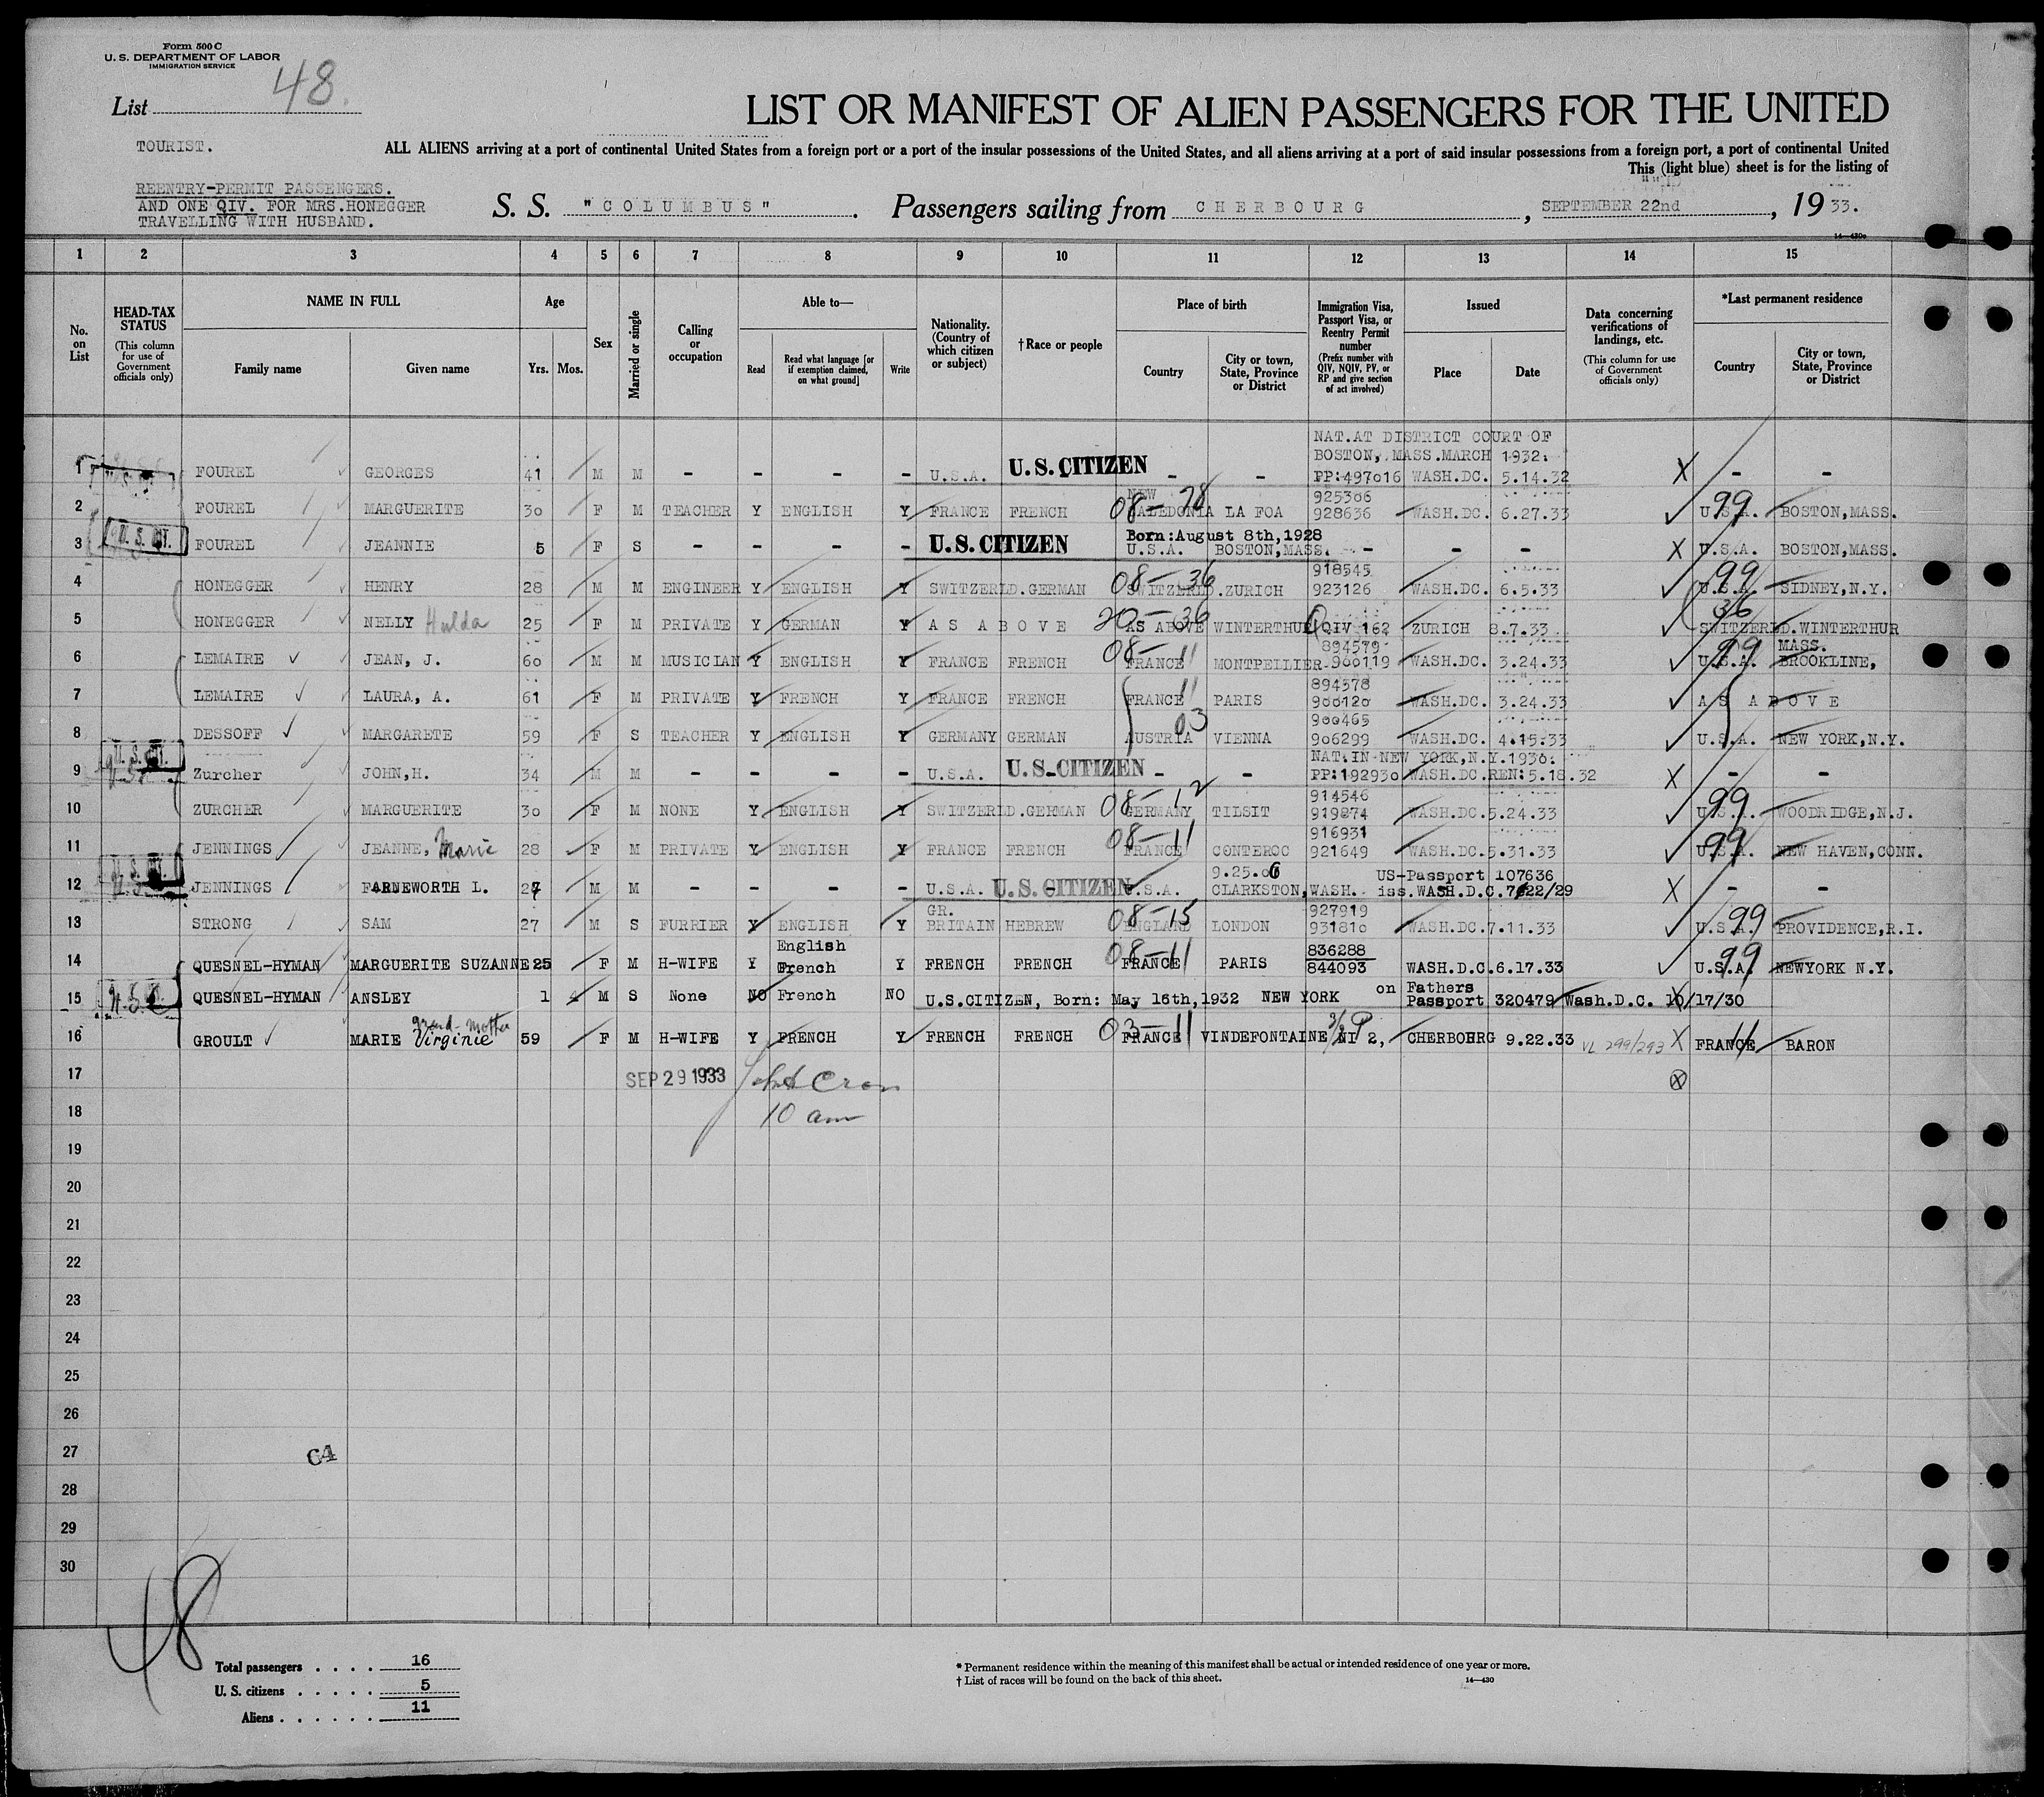 Form 500 C
U. S. DEPARTMENT OF LABOR
IMMIGRATION SERVICE
List 48.
LIST OR MANIFEST OF ALIEN PASSENGERS FOR THE UNITED
TOURIST.
ALL ALIENS arriving at a port of continental United States from a foreign port or a port of the insular possessions of the United States, and all aliens arriving at a port of said insular possessions from a foreign port, a port of continental United
This (light blue) sheet is for the listing of
REENTRY-PERMIT PASSENGERS.
AND ONE QIV. FOR MRS.HONEGGER
TRAVELLING WITH HUSBAND.
S. S. "COLUMBUS". Passengers sailing from CHERBOURG, SEPTEMBER 22nd, 1933.
14—430a
1 2 3 4 5 6 7 8 9 10 11 12 13 14 15
No. on List
HEAD-TAX STATUS
(This column for use of Government officials only)
NAME IN FULL
Family name Given name
Age
Yrs. Mos.
Sex
Married or single
Calling or occupation
Able to—
Read
Read what language [or if exemption claimed, on what ground]
Write
Nationality. (Country of which citizen or subject)
† Race or people
Place of birth
Country
City or town, State, Province or District
Immigration Visa, Passport Visa, or Reentry Permit number
(Prefix number with QIV, NQIV, PV, or RP and give section of act involved)
Issued
Place Date
Data concerning verifications of landings, etc.
(This column for use of Government officials only)
*Last permanent residence
Country
City or town, State, Province or District
NAT.AT DISTRICT COURT OF
BOSTON, MASS.MARCH 1932.
1 FOUREL GEORGES 41 M M - - - - U.S.A. U.S.CITIZEN - - PP:497016 WASH.DC. 5.14.32 X - -
NEW 925306
2 FOUREL MARGUERITE 30 F M TEACHER Y ENGLISH Y FRANCE FRENCH 08-78 CALEDONIA LA FOA 928636 WASH.DC. 6.27.33 U.S.A. 99 BOSTON,MASS.
Born:August 8th,1928
3 U.S. CIT. FOUREL JEANNIE 5 F S - - - - U.S.CITIZEN U.S.A. BOSTON,MASS. - - - X U.S.A. BOSTON,MASS.
918545
4 HONEGGER HENRY 28 M M ENGINEER Y ENGLISH Y SWITZERLD.GERMAN 08-36 SWITZERLD.ZURICH 923126 WASH.DC. 6.5.33 U.S.A. 99 SIDNEY,N.Y.
5 HONEGGER NELLY Hulda 25 F M PRIVATE Y GERMAN Y AS ABOVE 20-36 AS ABOVE WINTERTHUR QIV 162 ZURICH 8.7.33 36 SWITZERLD.WINTERTHUR
894579 MASS.
6 LEMAIRE JEAN, J. 60 M M MUSICIAN Y ENGLISH Y FRANCE FRENCH 08-11 FRANCE MONTPELLIER 900119 WASH.DC. 3.24.33 U.S.A. 99 BROOKLINE,
894578
7 LEMAIRE LAURA, A. 61 F M PRIVATE Y FRENCH Y FRANCE FRENCH 11 FRANCE PARIS 900120 WASH.DC. 3.24.33 AS ABOVE
900465
8 DESSOFF MARGARETE 59 F S TEACHER Y ENGLISH Y GERMANY GERMAN 03 AUSTRIA VIENNA 906299 WASH.DC. 4.15.33 U.S.A. NEW YORK,N.Y.
NAT.IN NEW YORK,N.Y.1930.
9 U.S. CIT. Zurcher JOHN,H. 34 M M - - - - U.S.A. U.S-CITIZEN - - PP:192930 WASH.DC.REN:5.18.32 X - -
914546
10 ZURCHER MARGUERITE 30 F M NONE Y ENGLISH Y SWITZERLD.GERMAN 08-12 GERMANY TILSIT 919874 WASH.DC.5.24.33 U.S.A. 99 WOODRIDGE,N.J.
916931
11 JENNINGS JEANNE, Marie 28 F M PRIVATE Y ENGLISH Y FRANCE FRENCH 08-11 FRANCE CONTEROC 921649 WASH.DC.5.31.33 U.S.A. 99 NEW HAVEN,CONN.
9.25.06 US-Passport 107636
12 JENNINGS FARNEWORTH L. 27 M M - - - - U.S.A. U.S.CITIZEN U.S.A. CLARKSTON,WASH. iss.WASH.D.C.7/22/29 X - -
GR. 927919
13 STRONG SAM 27 M S FURRIER Y ENGLISH Y BRITAIN HEBREW 08-15 ENGLAND LONDON 931810 WASH.DC.7.11.33 U.S.A. 99 PROVIDENCE,R.I.
English 836288
14 QUESNEL-HYMAN MARGUERITE SUZANNE 25 F M H-WIFE Y French Y FRENCH FRENCH 08-11 FRANCE PARIS 844093 WASH.D.C.6.17.33 U.S.A. 99 NEWYORK N.Y.
on Fathers
15 U.S.C QUESNEL-HYMAN ANSLEY 1 4 M S None NO French NO U.S.CITIZEN, Born: May 16th,1932 NEW YORK Passport 320479 Wash.D.C. 10/17/30
grand-mother
16 GROULT MARIE Virginie 59 F M H-WIFE Y FRENCH Y FRENCH FRENCH 03-11 FRANCE VINDEFONTAINE NI 2, CHERBOURG 9.22.33 VL 299/293 X FRANCE 11 BARON
17 SEP 29 1933
18 10 am
19
20
21
22
23
24
25
26
27 C4
28
29
30
48
Total passengers . . . . 16
U. S. citizens . . . . . 5
Aliens . . . . . . 11
* Permanent residence within the meaning of this manifest shall be actual or intended residence of one year or more.
† List of races will be found on the back of this sheet. 14—430